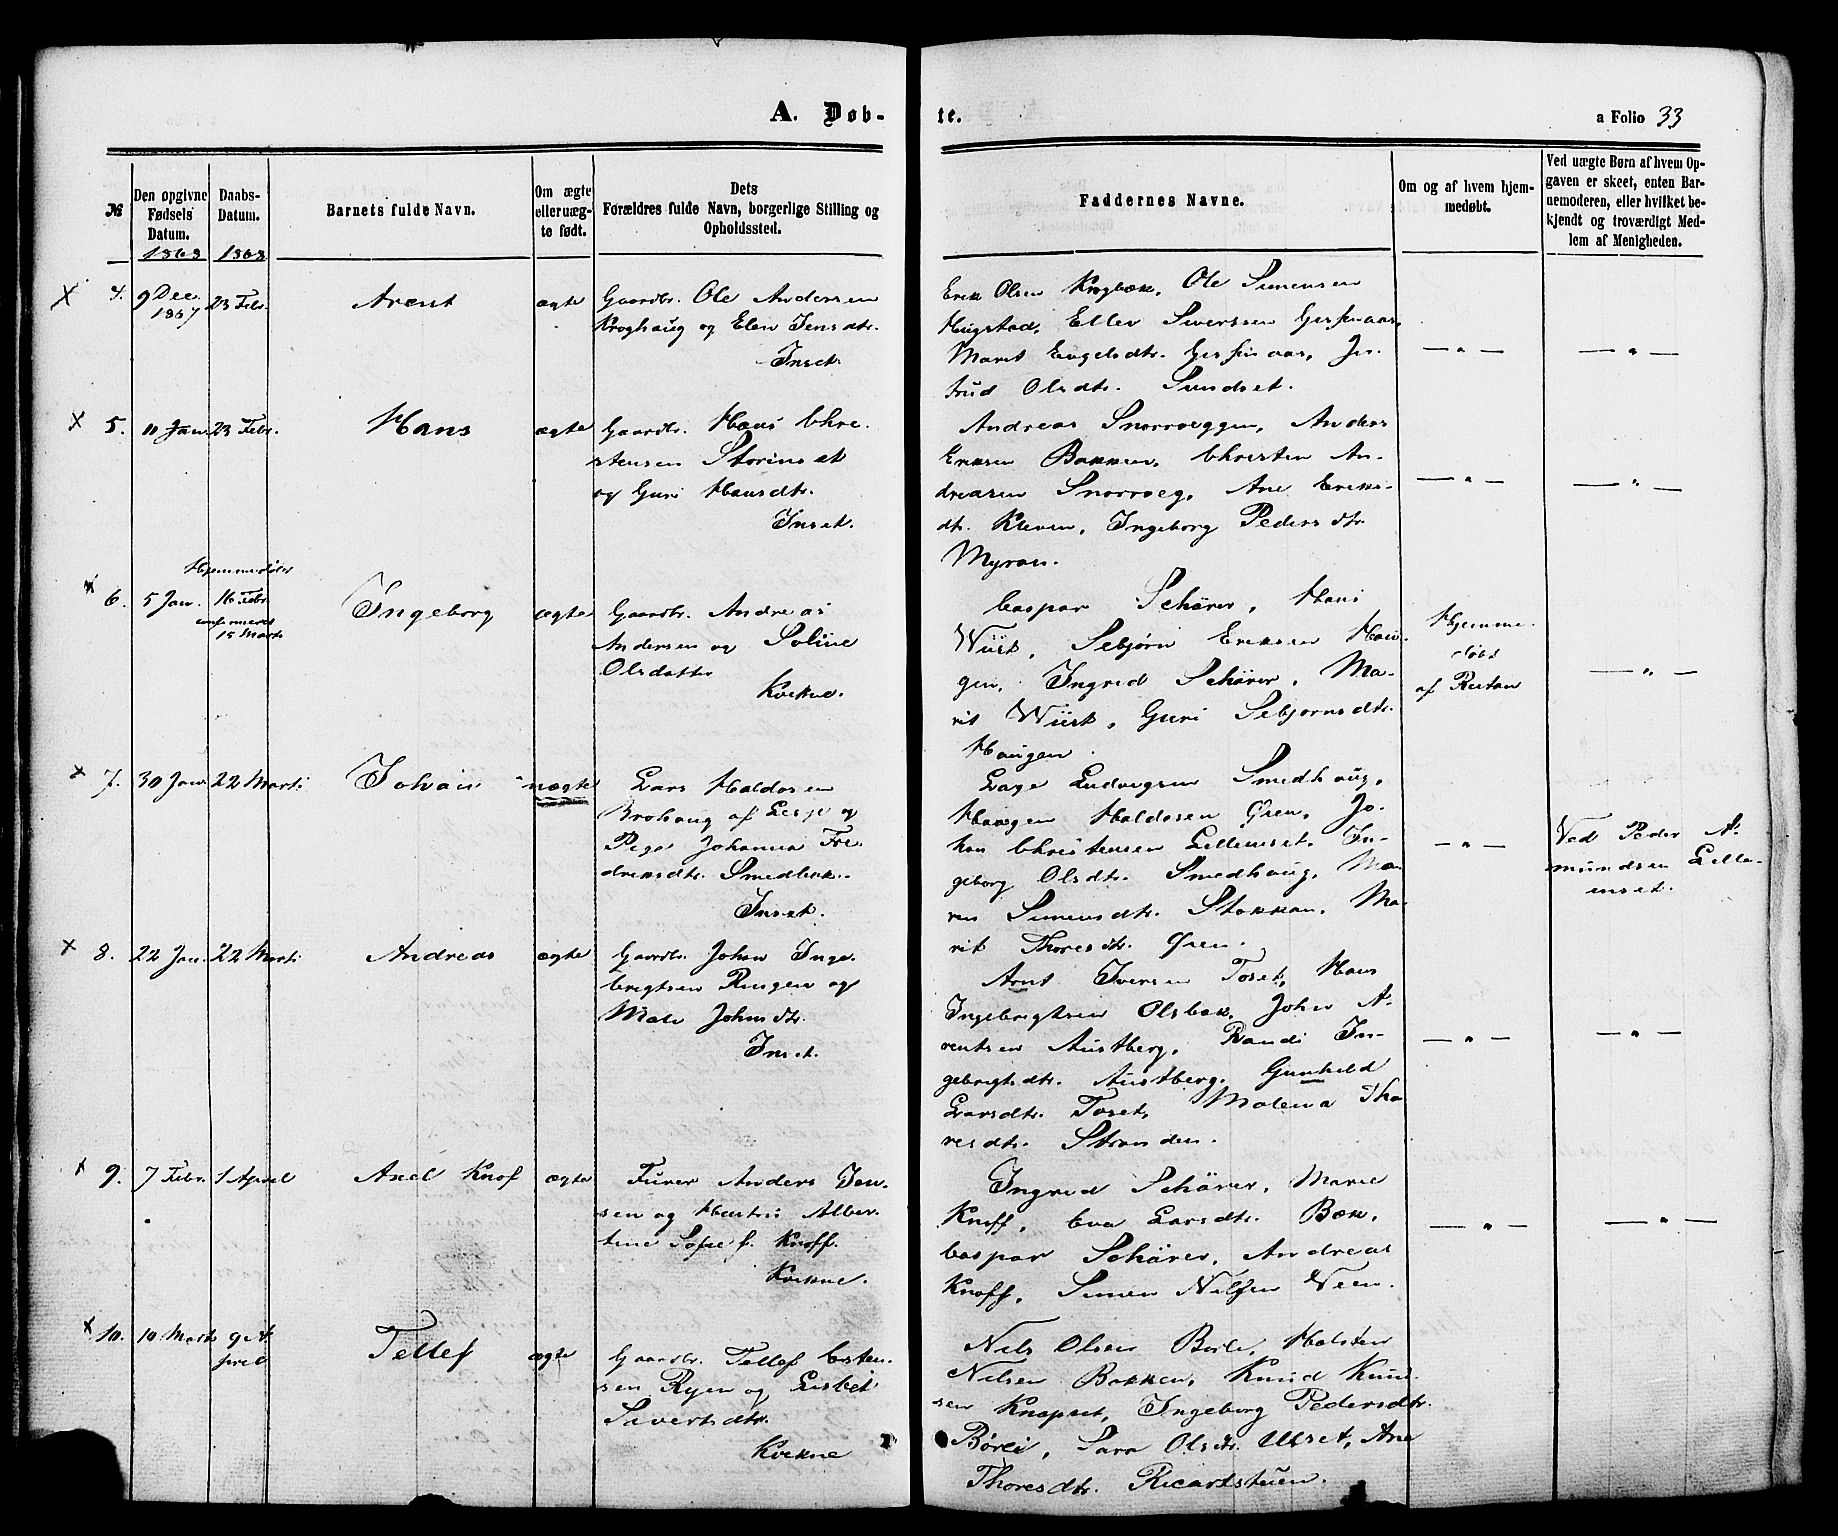 A. Døb-
te.
a Folio 33
№
Den opgivne
Fødsels
Datum.
1868
Daabs-
Datum.
1868
Barnets fulde Navn.
Om ægte
eller uæg-
te født.
Dets
Forældres fulde Navn, borgerlige Stilling og
Opholdssted.
Faddernes Navne.
Om og af hvem hjem-
medøbt.
Ved uægte Børn af hvem Op-
gaven er skeet, enten Bar-
nemoderen, eller hvilket be-
kjendt og troværdigt Med-
lem af Menigheden.
4.
9 Dec.
1867
23 Febr.
Arent
ægte
Gaardbr. Ole Andersen
Kroghaug og Elen Jensdtr.
Inset.
Erik Olsen Krogbæk, Ole Simensen
Hugstad, Ellev Siverssen
Marit Engelsdtr.
trud Olsdtr. Sundset.
— " —
— " —
5.
11 Jan.
23 Febr.
Hans
ægte
Gaardbr. Hans Chre-
stensen Storinset
og Guri Hansdtr.
Inset.
Andreas Snorroeggen, Anders
Eriksen Bakken, Christen An-
dreasen Snorroeg, Ane Eriks-
dtr. Kleven, Ingeborg Pedersdtr
Myran.
— " —
— " —
6.
5 Jan.
Hjemmedøbt
16 Febr
confirmeret
15 Marts
Ingeborg
ægte
Gaardbr. Andreas
Andersen og Soline
Olsdatter
Kvikne.
Caspar Schärer, Hans
Wüst, Sebjørn Eriksen Hau-
gen, Ingrid Schärer, Ma-
rit Wüst, Guri Sebjørnsdtr.
Haugen.
Hjemme-
døbt
af Rustan
— " —
7.
30 Jan
22 Marts
Johan
uægte
Lars Haldosen
Brohaug af Lesje og
Pige Johanna Fre-
driksdtr. Smedbæk.
Inset.
Lage Ludvigsen Smedhaug,
Haagen Haldosen Øien, Jo-
han Christensen Lilleinset, In-
geborg Olsdtr. Smedhaug, Ma-
ren Simensdtr. Stokkan, Ma-
rit Thoresdtr. Øien.
— " —
Ved Peder A-
mundsen Lille-
inset.
8.
22 Jan.
22 Marts
Andreas
ægte
Gaardbr. Johan Inge-
brigtsen Ringen og
Mali Johnsdtr.
Inset.
Arnt Iversen Toset, Hans
Ingebrigtsen Olsbæk, John A-
rentsen Austberg, Randi In-
gebrigtsdtr. Austberg, Gunhild
Larsdtr. Toset, Malena Tho-
resdtr. Stranden.
— " —
— " —
9.
7 Febr.
1 April
Axel Knof
ægte
Furer Anders Jen-
sen og Hustru Alber-
tine Sofie f. Knoff.
Kvikne.
Ingrid Schärer, Marie
Knoff, Eva Larsdtr. Bæk,
Caspar Schärer, Andreas
Knoff, Simen Nilsen Veen.
— " —
— " —
10.
10 Marts
9 A-
pril
Tellef
ægte
Gaardbr. Tellef Esten-
sen Ryen og Lisbet
Sivertsdtr.
Kvikne
Nils Olsen Børli, Halsten
Nilsen Bakken, Knud Knud-
sen Knapset, Ingeborg Pedersdtr.
Børli, Sara Olsdtr. Ulset, Ane
Thoresdtr. Ricartstuen.